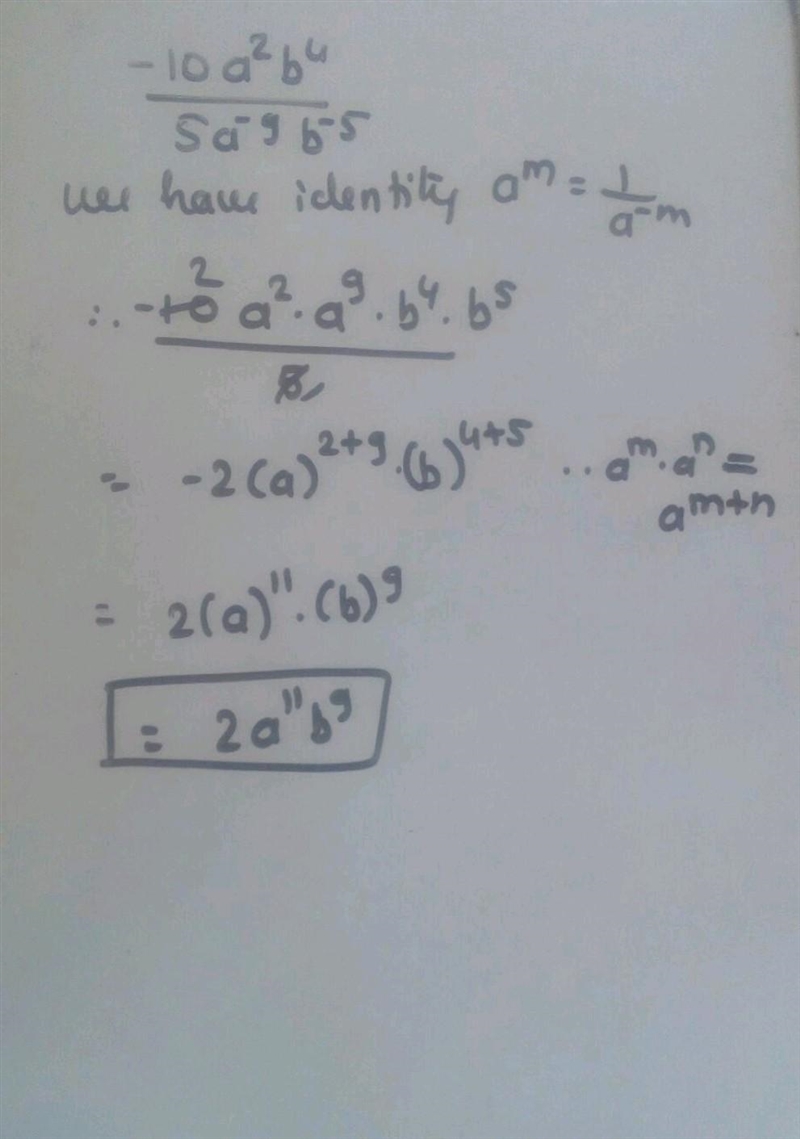 -10 a² b⁴
5a⁻⁹ b⁻⁵
we have identity aᵐ = 1/a⁻ᵐ
∴ -10 2 a² · a⁹ · b⁴ · b⁵
5
= -2 (a)²⁺⁹ · (b)⁴⁺⁵ .. aᵐ · aⁿ =
aᵐ⁺ⁿ
= 2(a)¹¹ · (b)⁹
= 2a¹¹b⁹